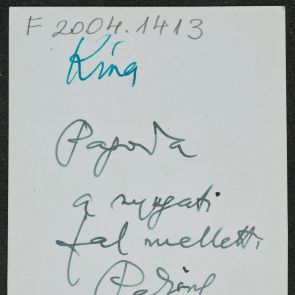 F 2004.1413
Kína
Pagoda
a nyugati
fal melletti